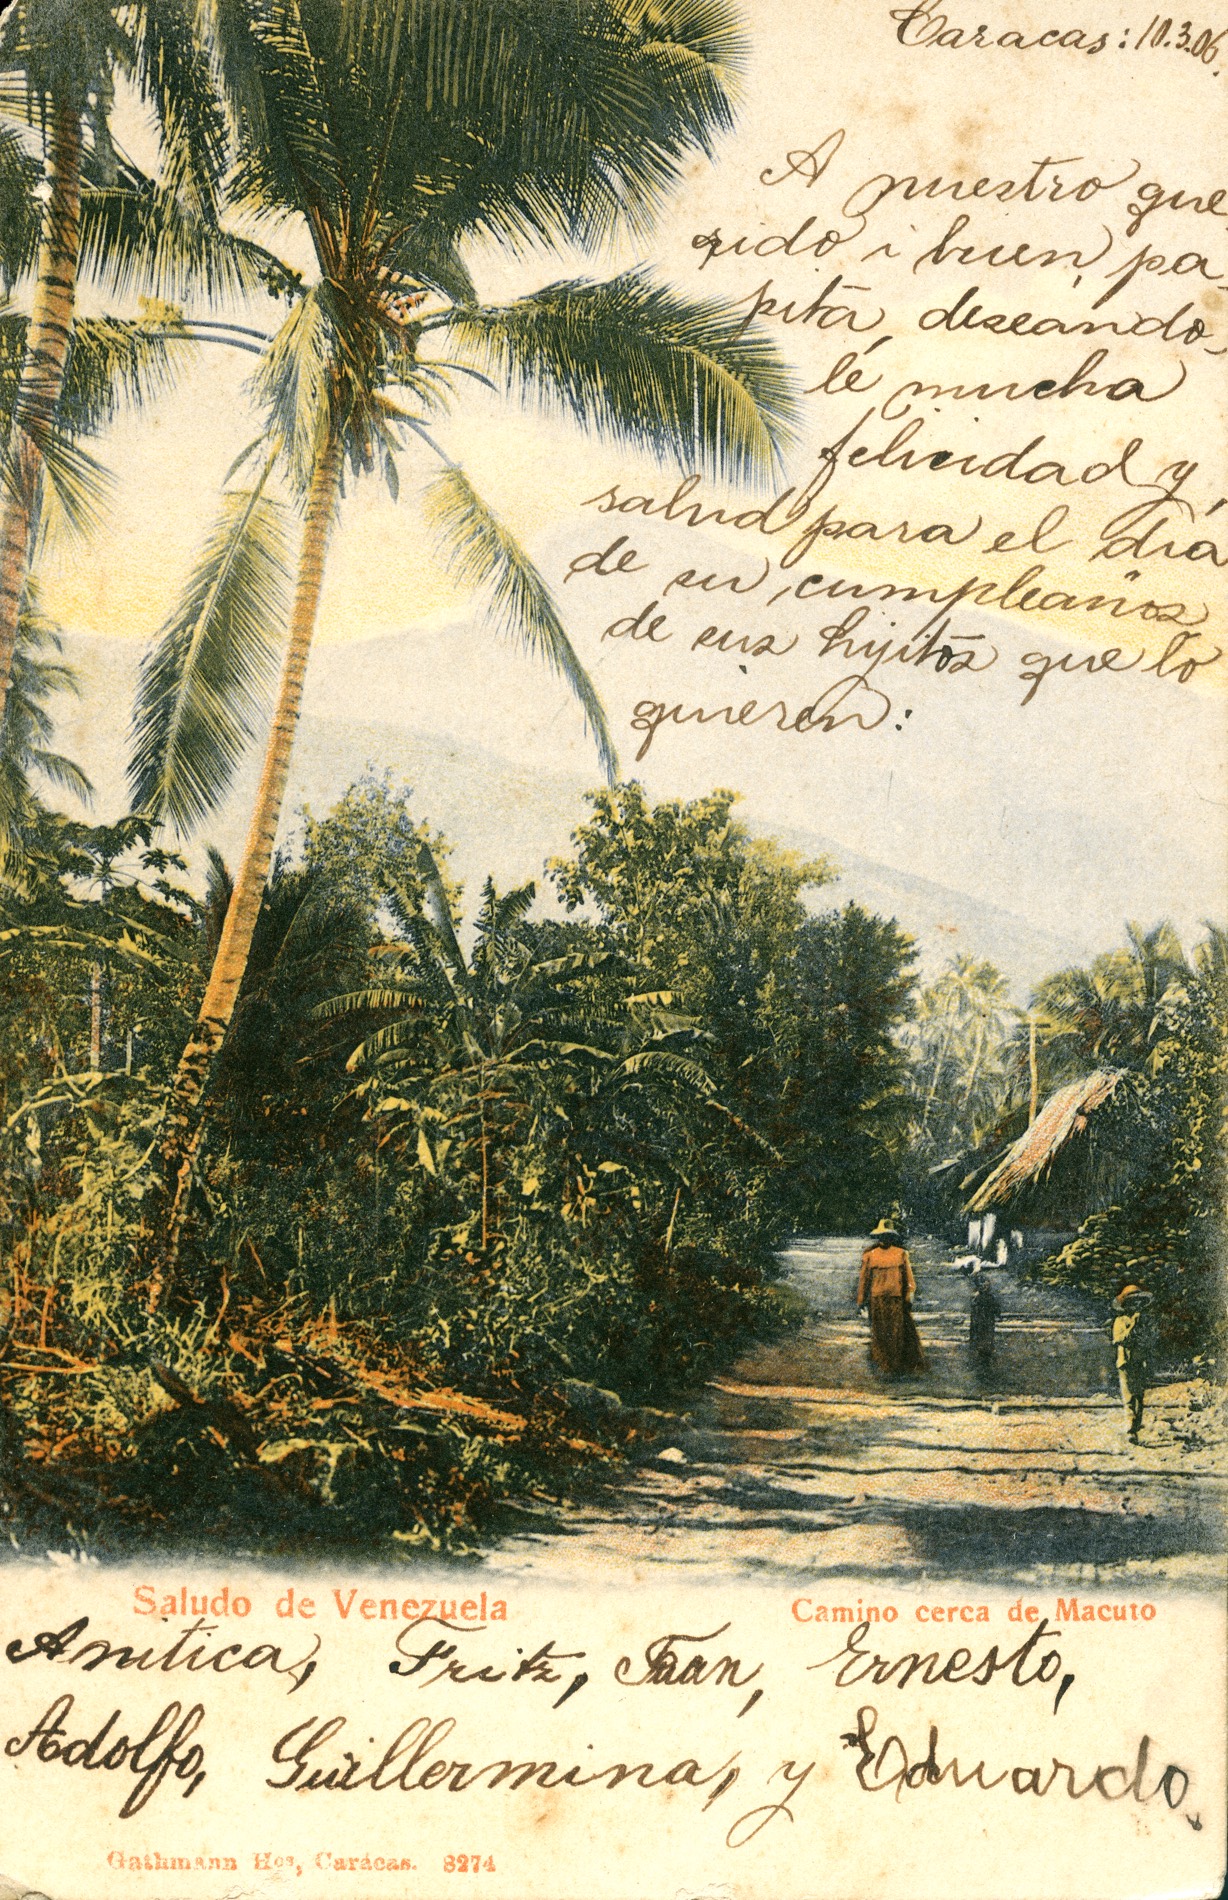 Caracas: 10.3.06.
A nuestro que
rido i buen pa
pitá, deseando
lé mucha
felicidad y
salud para el dia
de su cumpleaños
de sus hijitos que lo
quieren:
Saludo de Venezuela
Camino cerca de Macuto
Anitica, Fritz, Juan, Ernesto,
Adolfo, Guillermina, y Eduardo.
Gathmann Hos, Carácas. 8274